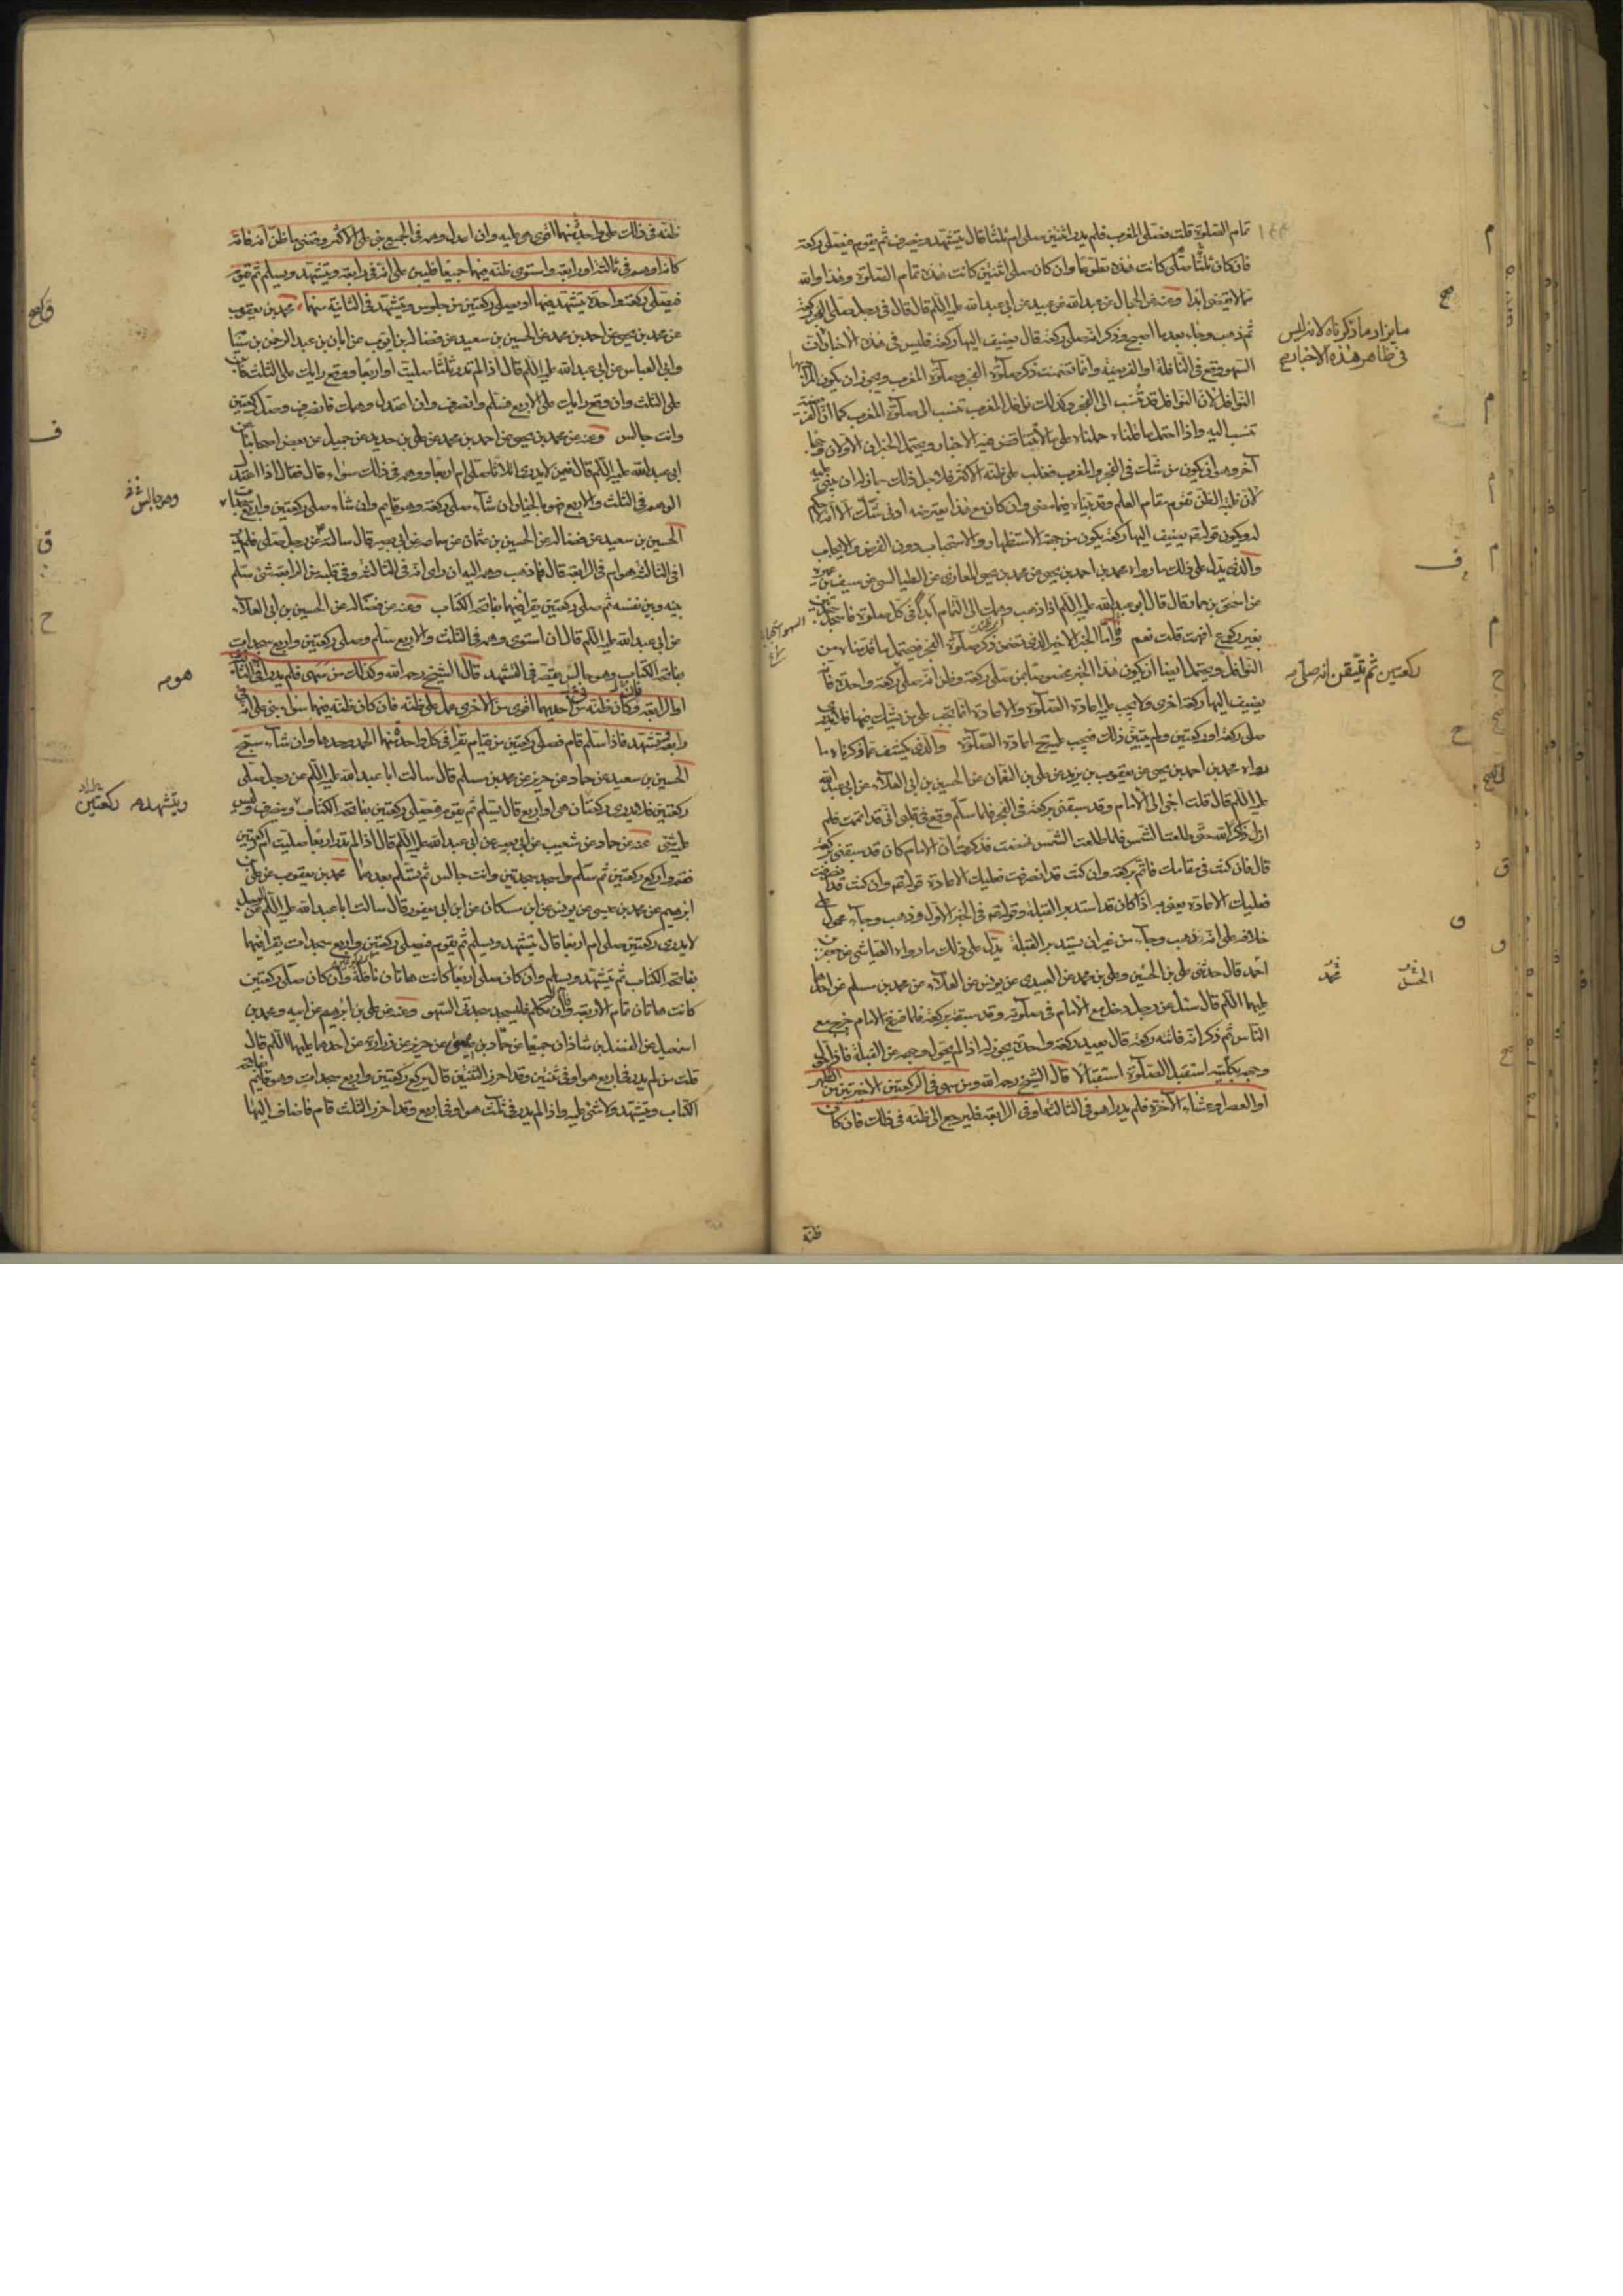 تمام الصلوة قلت فصلى المغرب فلم يدر اثنتين صلى ام ثلثا قال يتشهد وينصرف ثم يقوم فيصلى ركعة
فان كان صلى ثلثا كانت هذه تطوعا وان كان صلى اثنتين كانت هذه تمام الصلوة وهذا والله
مما لا يقضى ابدا وعنه عن الحجال عن عبد الله عن عبيد عن ابى عبد الله عليه السلم قال قال فى رجل صلى الفجر ركعة
ثم ذهب وجاء بعد ما اصبح وذكر انه صلى ركعة قال يضيف اليها ركعة فليس فى هذه الاخبار ان
السهو وقع فى النافلة او الفريضة وانما تضمنت ذكر صلوة الفجر وصلوة المغرب ويجوز ان يكون المراد بها
النوافل لان النوافل قد تنسب الى الفجر وكذلك نوافل المغرب تنسب الى صلوة المغرب كما ان الفريضة
تنسب اليه واذا احتمل ما قلناه حملناه على ما لا يتناقض فيه الاخبار ويحتمل الخبران الاولان وجها
آخر وهو ان يكون من شك فى الفجر والمغرب فغلب على ظنه الاكثر فلاجل ذلك جاز له ان يبنى عليه
لان غلبة الظن تقوم مقام العلم وقد بيناه فيما مضى وان كان مع هذا يعترضه ادنى شك الا انه لا حكم
له ويكون قوله ع يضيف اليها ركعة يكون من جهة الاستظهار والاستحباب دون الفرض والايجاب
والذى يدل على ذلك ما رواه محمد بن احمد بن يحيى عن محمد بن يحيى المعاذى عن الطيالسى عن سيف بن عميرة
عن اسحق بن عمار قال قال ابو عبد الله عليه السلم اذا ذهب وهمك الى التمام ابدا فى كل صلوة فاسجد سجدتين
بغير ركوع افهمت قلت نعم واما الخبر الاخير الذى تضمن ذكر صلوة الفجر فيحتمل ما قدمناه من
النوافل ويحتمل ايضا ان يكون هذا الخبر مخصوصا بمن صلى ركعة وظن انه صلى ركعة واحدة فانه
يضيف اليها ركعة اخرى ولا يجب عليه اعادة الصلوة والاعادة انما تجب على من يشك فيها فلا يدرى
صلى ركعة او ركعتين ولم يتيقن ذلك فيجب عليه ح اعادة الصلوة والذى يكشف عما ذكرناه ما
رواه محمد بن احمد بن يحيى عن يعقوب بن يزيد عن على بن النعمان عن الحسين بن ابى العلاء عن ابى عبد الله
عليه السلم قال قلت اجئ الى الامام وقد سبقنى بركعة فى الفجر فلما سلم وقع فى قلبى انى قد اتممت فلم
ازل ذاكر الله حتى طلعت الشمس فلما طلعت الشمس نهضت فذكرت ان الامام كان قد سبقنى بركعة
قال فان كنت فى مقامك فاتم بركعة وان كنت قد انصرفت فعليك الاعادة قوله ع وان كنت قد انصرفت
فعليك الاعادة يعنى به اذا كان قد استدبر القبلة وقوله ع فى الخبر الاول وذهب وجاء محمول على
خلافه على انه ذهب وجاء من غير ان يستدبر القبلة يدل على ذلك ما رواه العياشى عن جعفر بن
احمد قال حدثنى على بن الحسن وعلى بن محمد عن العبيدى عن يونس عن العلاء عن محمد بن مسلم عن احدهما
عليهما السلم قال سئل عن رجل دخل مع الامام فى صلوته وقد سبقه بركعة فلما فرغ الامام خرج مع
الناس ثم ذكر انه فاتته ركعة قال يعيد ركعة واحدة يجوز له اذا لم يحول وجهه عن القبلة فاذا حول
وجهه بكليته استقبل الصلوة استقبالا قال الشيخ رحمه الله ومن سهى فى الركعتين الاخيرتين من الظهر
او العصر او عشاء الآخرة فلم يدر اهو فى الثالثة او فى الرابعة فليرجع الى ظنه فى ذلك فان كان
ظنه
ما يزاد ما ذكرناه لانه ليس
فى ظاهر هذه الاخبار صح
ركعتين ثم تيقن انه صلى
ظنه فى ذلك على واحد منهما اقوى بنى عليه وان اعتدل وهمه فى الجميع بنى على الاكثر وقضى ما ظن انه فاته
كانه اوهم فى ثالثة او رابعة واستوى ظنه فيهما جميعا فليبن على انه فى رابعة ويتشهد ويسلم ثم يقوم
فيصلى ركعة واحدة يتشهد فيها او يصلى ركعتين من جلوس ويتشهد فى الثانية منهما محمد بن يعقوب
عن محمد بن يحيى عن احمد بن محمد عن الحسين بن سعيد عن فضالة بن ايوب عن ابان بن عبد الرحمن بن سيابة
وابى العباس عن ابى عبد الله عليه السلم قال اذا لم تدر ثلثا صليت او اربعا ووقع رايك على الثلث فابن
على الثلث وان وقع رايك على الاربع فسلم وانصرف وان اعتدل وهمك فانصرف وصل ركعتين
وانت جالس وعنه عن محمد بن يحيى عن احمد بن محمد عن على بن حديد عن جميل عن بعض اصحابنا عن
ابى عبد الله عليه السلم قال فيمن لا يدرى اثلاثا صلى ام اربعا ووهمه فى ذلك سواء قال فقال اذا اعتدل
الوهم فى الثلث والاربع فهو بالخيار ان شاء صلى ركعة وهو قايم وان شاء صلى ركعتين واربع سجدات
الحسين بن سعيد عن فضالة عن الحسين بن عثمان عن سماعة عن ابى بصير قال سالته عن رجل صلى فلم يدر
افى الثالثة هو ام فى الرابعة قال فما ذهب وهمه اليه ان راى انه فى الثالثة وفى قلبه من الرابعة شئ سلم
بينه وبين نفسه ثم صلى ركعتين يقرا فيهما بفاتحة الكتاب وعنه عن فضالة عن الحسين بن ابى العلاء
عن ابى عبد الله عليه السلم قال ان استوى وهمه فى الثلث والاربع سلم وصلى ركعتين واربع سجدات
بفاتحة الكتاب وهو جالس يقصر فى التشهد قال الشيخ رحمه الله وكذلك من سهى فلم يدر افى الثانية
او الرابعة فان كان ظنه فى احديهما اقوى من الاخرى عمل على ظنه فان كان ظنه فيهما سواء بنى على انه فى
رابعة وتشهد فاذا سلم قام فصلى ركعتين من قيام يقرا فى كل واحدة منهما الحمد وحدها وان شاء سبح
الحسين بن سعيد عن حماد عن حريز عن محمد بن مسلم قال سالت ابا عبد الله عليه السلم عن رجل صلى
ركعتين فلا يدرى ركعتان هى او اربع قال يسلم ثم يقوم فيصلى ركعتين بفاتحة الكتاب وينصرف وليس
عليه شئ عنه عن حماد عن شعيب عن ابى بصير عن ابى عبد الله عليه السلم قال اذا لم تدر اربعا صليت ام ركعتين
فقم واركع ركعتين ثم سلم واسجد سجدتين وانت جالس ثم تسلم بعدهما محمد بن يعقوب عن على بن
ابرهيم عن محمد بن عيسى عن يونس عن ابن مسكان عن ابن ابى يعفور قال سالت ابا عبد الله عليه السلم عن الرجل
لا يدرى ركعتين صلى ام اربعا قال يتشهد ويسلم ثم يقوم فيصلى ركعتين واربع سجدات يقرا فيهما
بفاتحة الكتاب ثم يتشهد ويسلم وان كان صلى اربعا كانت هاتان نافلة وان كان صلى ركعتين
كانت هاتان تمام الاربعة وان تكلم فليسجد سجدتى السهو وعنه عن على بن ابرهيم عن ابيه ومحمد بن
اسمعيل عن الفضل بن شاذان جميعا عن حماد بن عيسى عن حريز عن زرارة عن احدهما عليهما السلم قال
قلت من لم يدر فى اربع هو او فى ثنتين وقد احرز الثنتين قال يركع ركعتين واربع سجدات وهو قايم بفاتحة
الكتاب ويتشهد ولا شئ عليه واذا لم يدر فى ثلث هو او فى اربع وقد احرز الثلث قام فاضاف اليها
وهو جالس
ويتشهد ركعتين